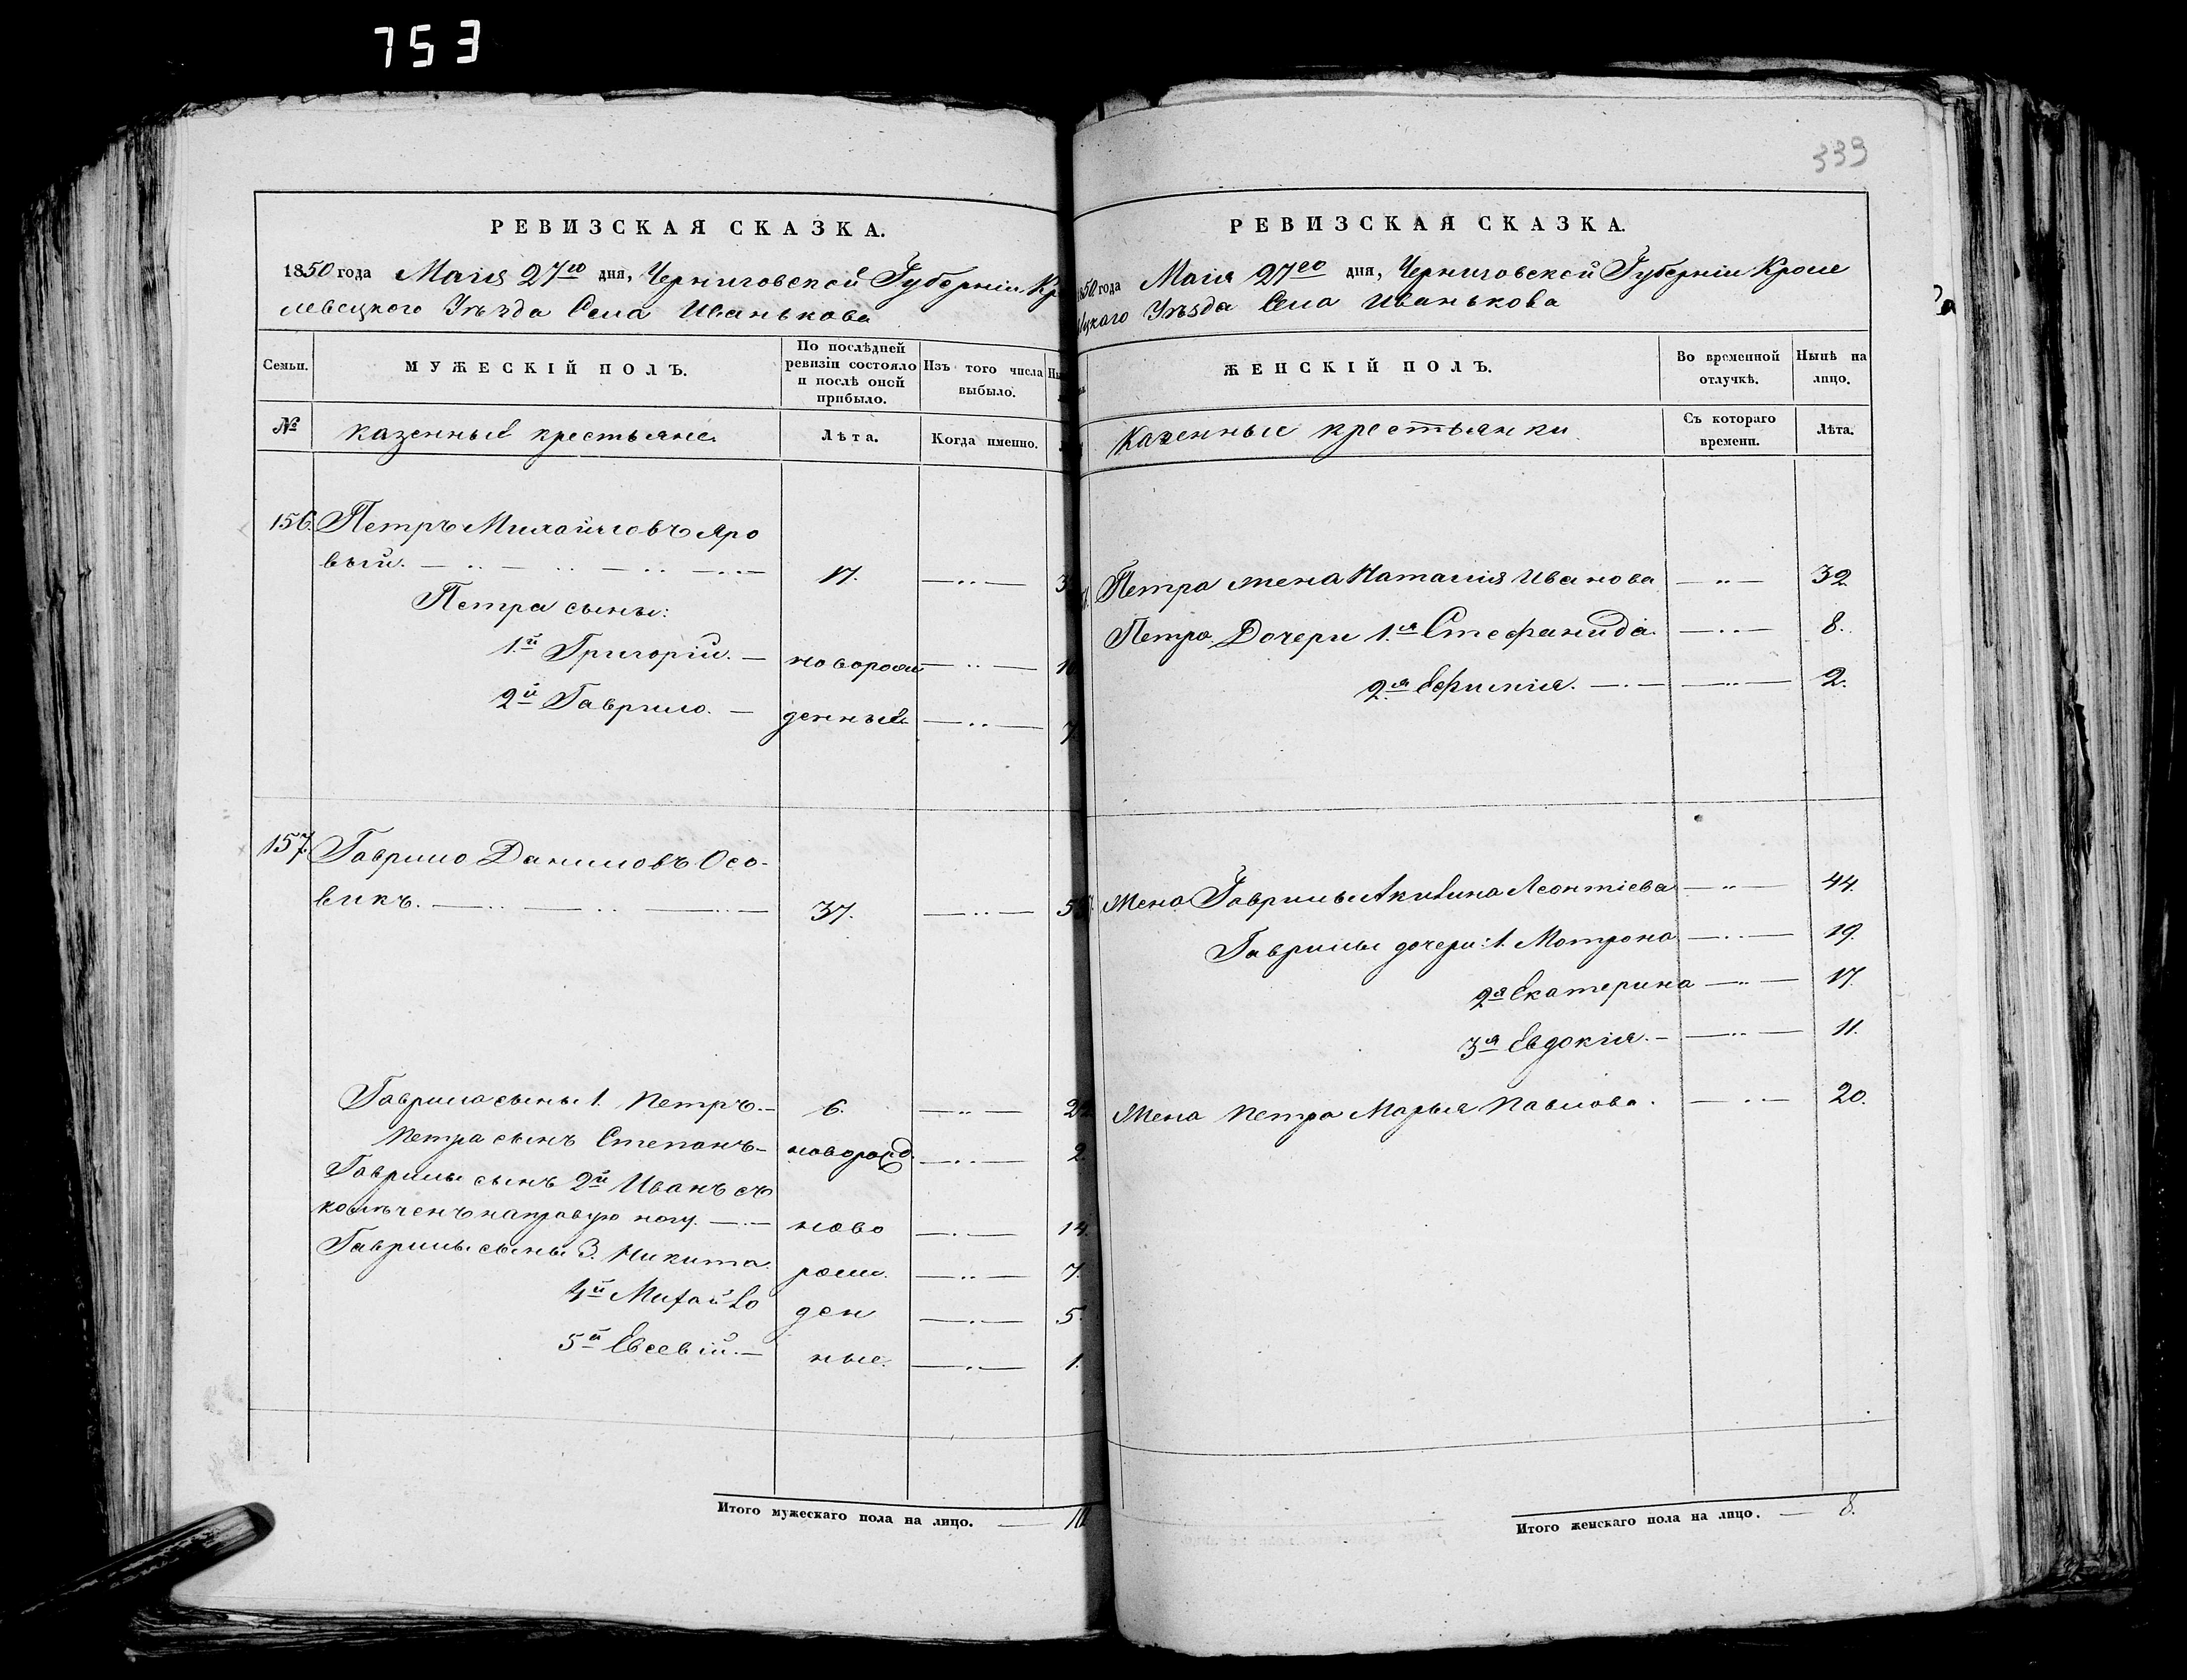 753
РЕВИЗСКАЯ СКАЗКА.
1850 года Маія 27го дня, Черниговской Губерніи Кро
левецкого Уѣзда Села Иванькова
Семьи. МУЖЕСКІЙ ПОЛЪ. По послѣдней ревизіи состояло и послѣ оной прибыло. Изъ того числа выбыло.
№ казенные крестьяне. Лѣта. Когда именно.
156. Петръ Михайловъ Яро
вый. 17.
Петра сыны:
1й Григорій. — новорож
2й Гаврило. — денные 7.
157. Гаврило Даниловъ Осо-
викъ. 37.
Гаврила сыны 1. Петръ. — 6.
Петра сынъ Степанъ — новорожд. 2.
Гаврилы сынъ 2й Иванъ съ
калѣченъ на правую ногу. ново 14.
Гаврилы сыны 3. Никита. рож. 7.
4й Михайло ден 5.
5й Евсевій. — ные. 1.
Итого мужескаго пола на лицо.
339
РЕВИЗСКАЯ СКАЗКА.
1850 года Маія 27го дня, Черниговской Губерніи Кроле
вецкаго Уѣзда Села Иванькова
ЖЕНСКІЙ ПОЛЪ. Во временной отлучкѣ. Нынѣ на лицо.
Казенные крестьянки Съ котораго времени. Лѣта.
Петра жена Наталія Иванова 32.
Петра Дочери 1.я Стефанида. 8.
2.я Ефимія. 2.
Жена Гаврилы Акилина Леонтіева 44.
Гаврилы дочери: 1. Мотрона 19.
2я Екатерина 17.
3я Евдокія. 11.
Жена Петра Марья Павлова. 20.
Итого женскаго пола на лицо. 8.